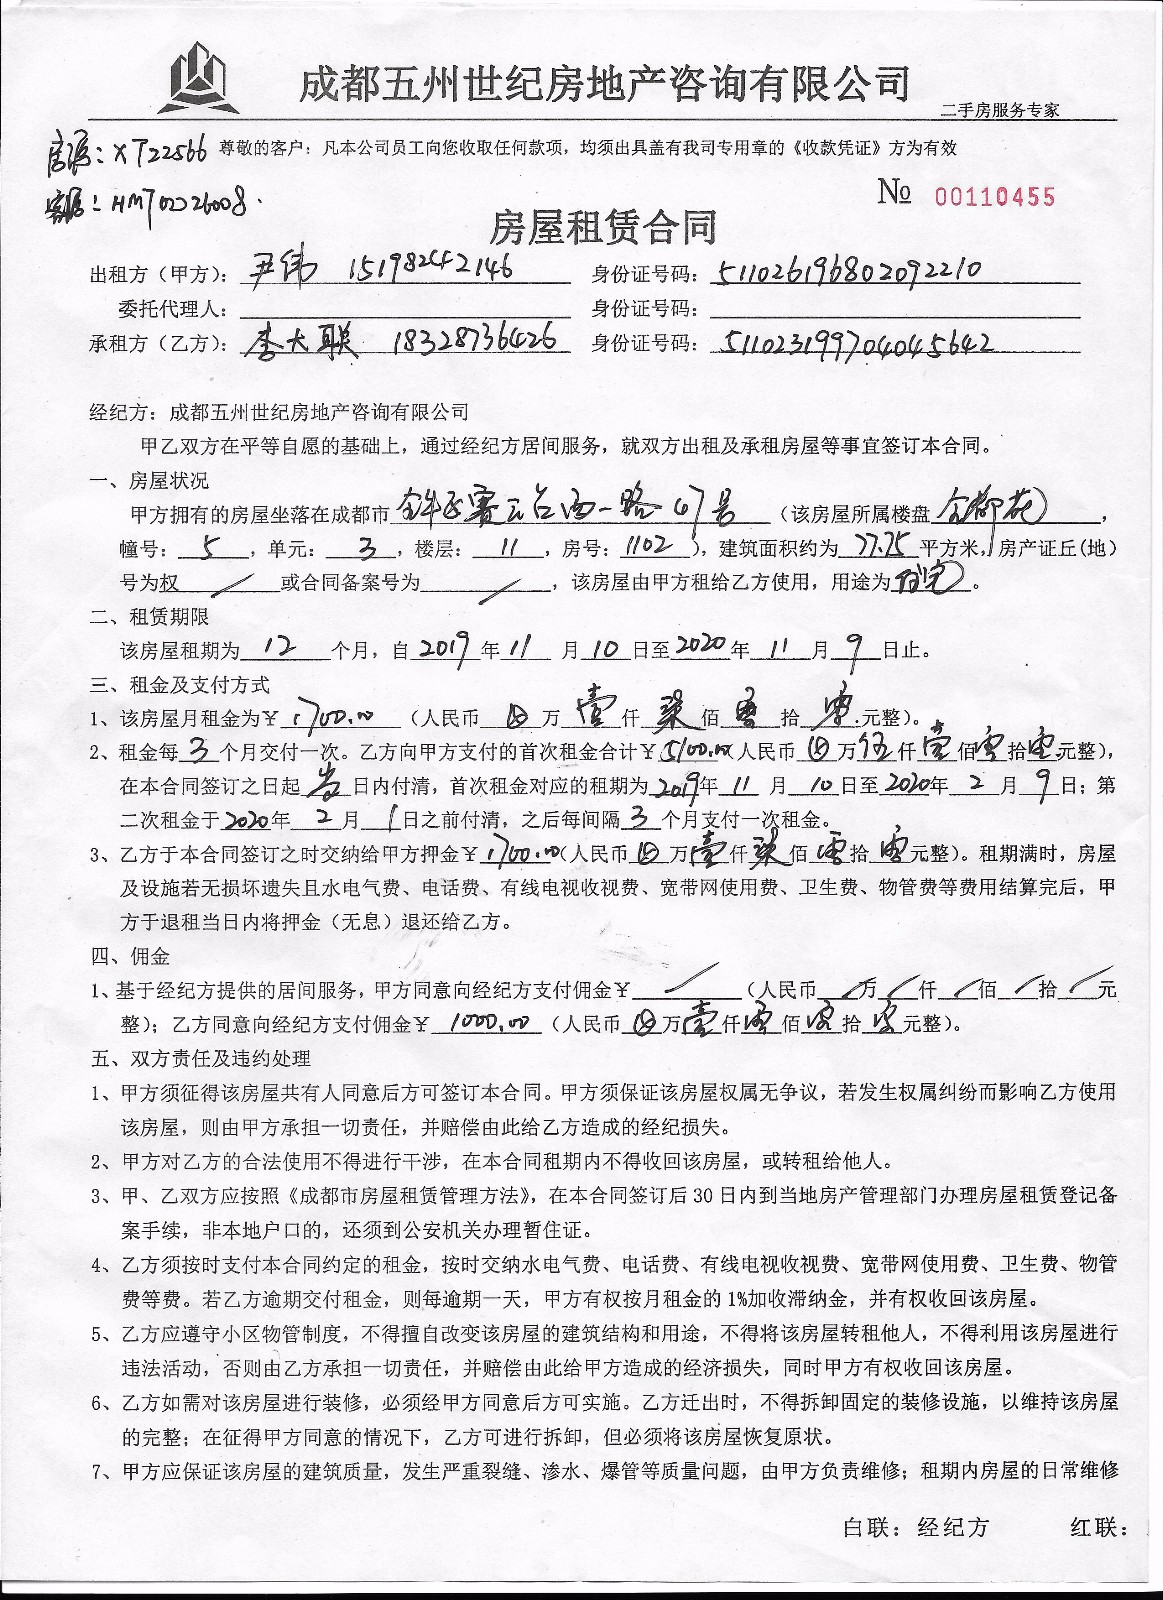 成都五州世纪房地产咨询有限公司
二手房服务专家
房源：XT22566 尊敬的客户：凡本公司员工向您收取任何款项，均须出具盖有我司专用章的《收款凭证》方为有效
客源：HMT02026008.
№ 00110455
房屋租赁合同
出租方（甲方）：尹伟 15198242146 身份证号码：511026196802092210
委托代理人： 身份证号码：
承租方（乙方）：李大联 18328736426 身份证号码：511023199704045642
经纪方：成都五州世纪房地产咨询有限公司
甲乙双方在平等自愿的基础上，通过经纪方居间服务，就双方出租及承租房屋等事宜签订本合同。
一、房屋状况
甲方拥有的房屋坐落在成都市金牛区赛云台西一路67号（该房屋所属楼盘金都苑），
幢号：5，单元：3，楼层：11，房号：1102），建筑面积约为77.75平方米，房产证丘(地)
号为权 / 或合同备案号为 / ，该房屋由甲方租给乙方使用，用途为住宅。
二、租赁期限
该房屋租期为 12 个月，自 2019 年 11 月 10 日至 2020 年 11 月 9 日止。
三、租金及支付方式
1、该房屋月租金为￥1700.00（人民币 万 壹 仟 柒 佰 零 拾 零 元整）。
2、租金每 3 个月交付一次。乙方向甲方支付的首次租金合计￥5100.00（人民币 万伍仟壹佰零拾零元整），
在本合同签订之日起 当 日内付清，首次租金对应的租期为 2019年 11 月 10 日至 2020年 2 月 9 日；第
二次租金于 2020年 2 月 1 日之前付清，之后每间隔 3 个月支付一次租金。
3、乙方于本合同签订之时交纳给甲方押金￥1700.00（人民币 万壹仟柒佰零拾零元整）。租期满时，房屋
及设施若无损坏遗失且水电气费、电话费、有线电视收视费、宽带网使用费、卫生费、物管费等费用结算完后，甲
方于退租当日内将押金（无息）退还给乙方。
四、佣金
1、基于经纪方提供的居间服务，甲方同意向经纪方支付佣金￥ / （人民币 / 万 / 仟 / 佰 / 拾 / 元
整）；乙方同意向经纪方支付佣金￥ 1000.00 （人民币 万壹仟零佰零拾零元整）。
五、双方责任及违约处理
1、甲方须征得该房屋共有人同意后方可签订本合同。甲方须保证该房屋权属无争议，若发生权属纠纷而影响乙方使用
该房屋，则由甲方承担一切责任，并赔偿由此给乙方造成的经纪损失。
2、甲方对乙方的合法使用不得进行干涉，在本合同租期内不得收回该房屋，或转租给他人。
3、甲、乙双方应按照《成都市房屋租赁管理方法》，在本合同签订后 30 日内到当地房产管理部门办理房屋租赁登记备
案手续，非本地户口的，还须到公安机关办理暂住证。
4、乙方须按时支付本合同约定的租金，按时交纳水电气费、电话费、有线电视收视费、宽带网使用费、卫生费、物管
费等费。若乙方逾期交付租金，则每逾期一天，甲方有权按月租金的 1%加收滞纳金，并有权收回该房屋。
5、乙方应遵守小区物管制度，不得擅自改变该房屋的建筑结构和用途，不得将该房屋转租他人，不得利用该房屋进行
违法活动，否则由乙方承担一切责任，并赔偿由此给甲方造成的经济损失，同时甲方有权收回该房屋。
6、乙方如需对该房屋进行装修，必须经甲方同意后方可实施。乙方迁出时，不得拆卸固定的装修设施，以维持该房屋
的完整；在征得甲方同意的情况下，乙方可进行拆卸，但必须将该房屋恢复原状。
7、甲方应保证该房屋的建筑质量，发生严重裂缝、渗水、爆管等质量问题，由甲方负责维修；租期内房屋的日常维修
白联：经纪方 红联：